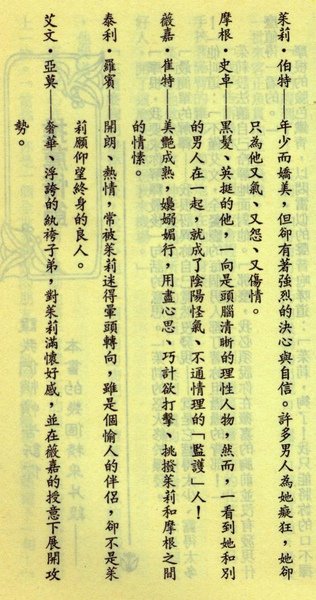 茱莉·伯特——年少而嬌美，但卻有著強烈的決心與自信。許多男人為她癡狂，她卻
只為他又氣、又怨、又傷情。
摩根·史卓——黑髮、英挺的他，一向是頭腦清晰的理性人物，然而，一看到她和別
的男人在一起，就成了陰陽怪氣、不通情理的「監護」人！
薇嘉·崔特——美艷成熟，嬝嫋媚行，用盡心思、巧計欲打擊、挑撥茱莉和摩根之間
的情愫。
泰利·羅賓——開朗、熱情，常被茱莉迷得暈頭轉向，雖是個愉人的伴侶，卻不是茱
莉願仰望終身的良人。
艾文·亞莫——奢華、浮誇的紈袴子弟，對茱莉滿懷好感，並在薇嘉的授意下展開攻
勢。